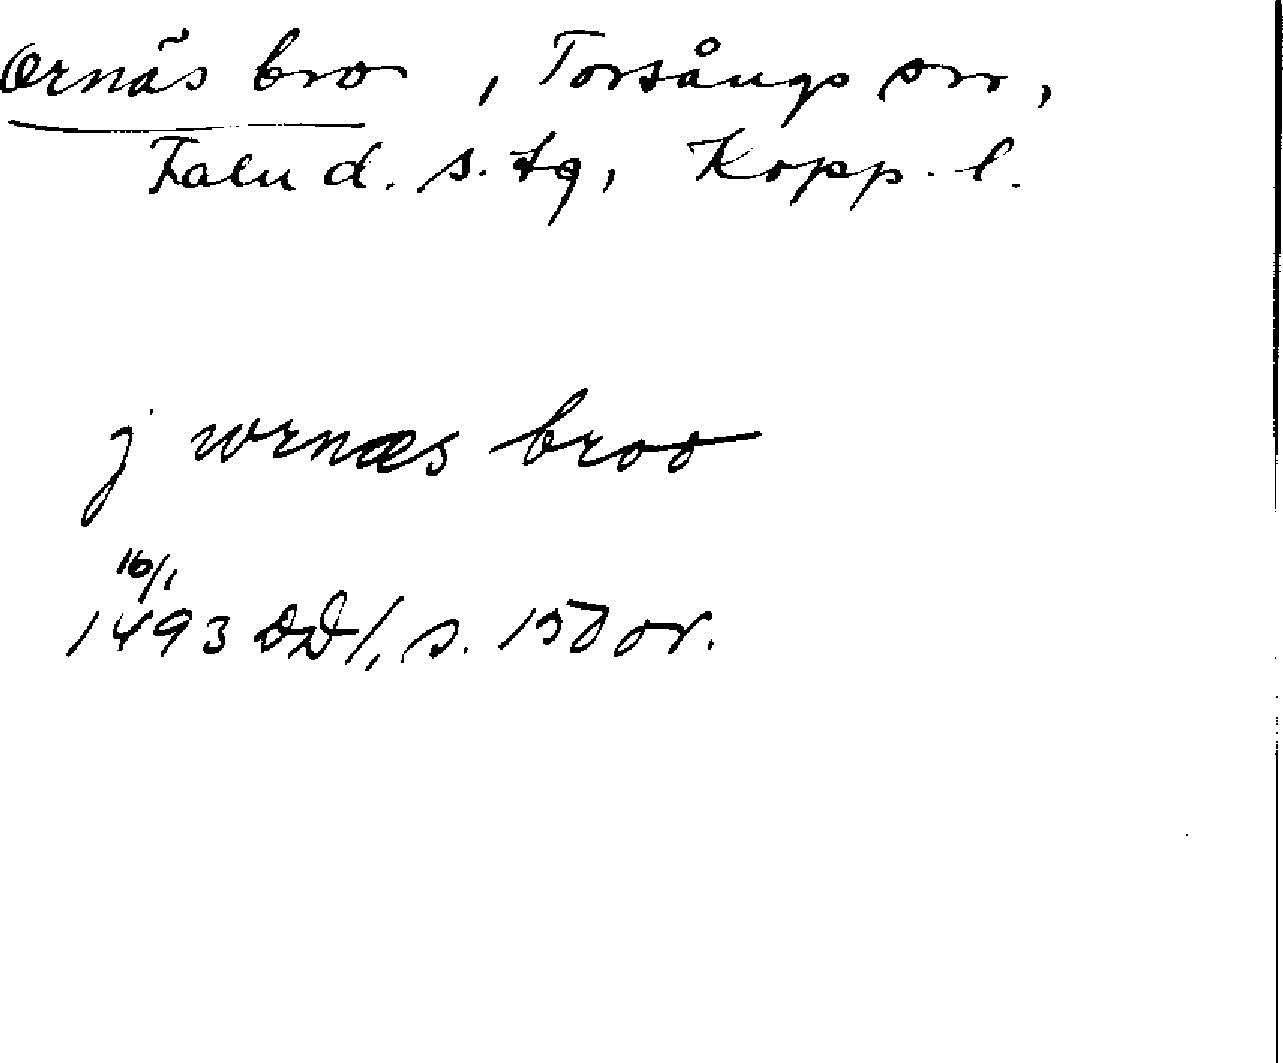 Ornäs bro, Torsångs sn,
Falu d. s. tg, Kopp. l.
j wornæs broo
16/1
1493 DD 1, s. 150 or.